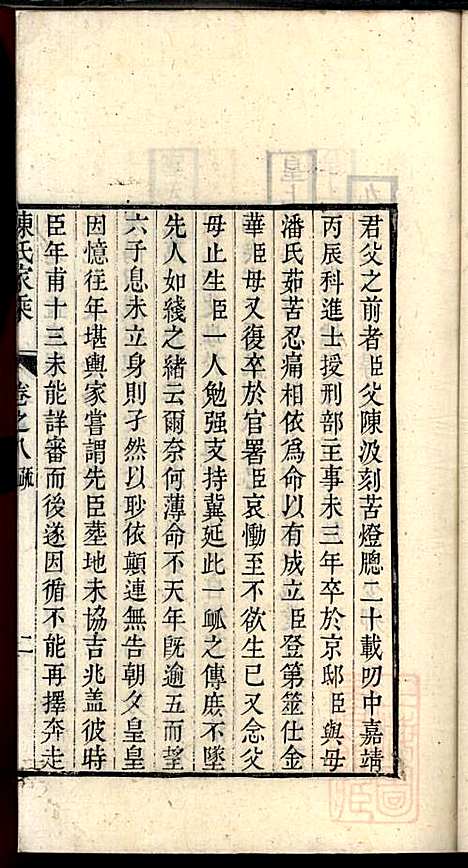 君父之前者臣父陳汲刻苦燈牕二十載叨中嘉靖
丙辰科進士授刑部主事未三年卒於京邸臣與母
潘氏茹苦忍痛相依為命以有成立臣登第筮仕金
華臣母又復卒於官署臣哀慟至不欲生已又念父
母止生臣一人勉强支持冀延此一衇之傳庶不墜
先人如綫之緒云爾奈何薄命不天年旣逾五而望
六子息未立身則孑然以眇依顛連無告朝夕皇皇
因憶往年堪輿家嘗謂先臣墓地未協吉兆盖彼時
臣年甫十三未能詳審而後遂因循不能再擇奔走
陳氏家乘
卷之八
疏
二